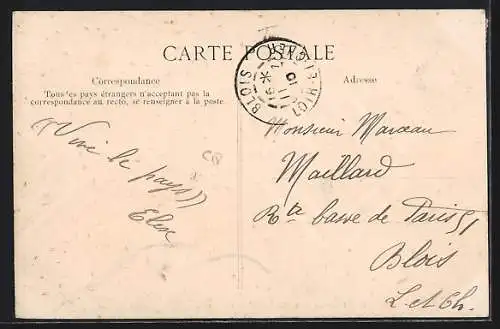 CARTE POSTALE
Correspondance
Tous les pays étrangers n'acceptent pas la
correspondance au recto, se renseigner à la poste.
Adresse
BLOIS
LOIR-ET-CHER
"Vive le pays"
Monsieur Marceau
Maillard
Rte basse de Paris 51
Blois
L et Ch.